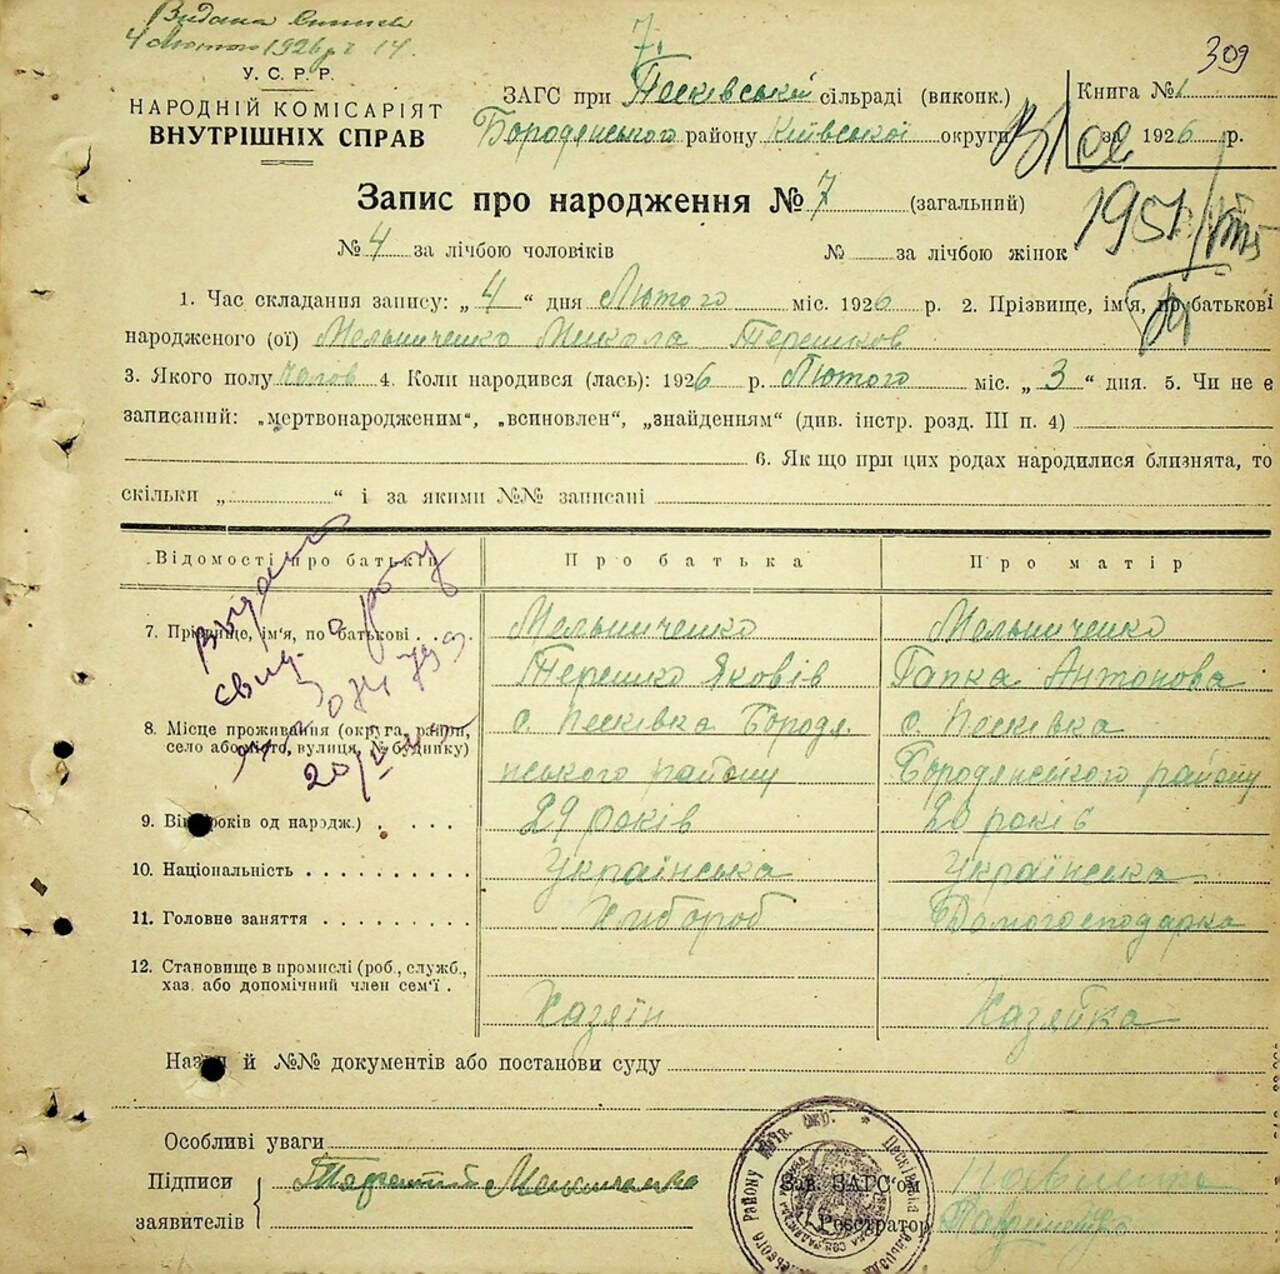 Видана
4 Лютого 1926 р.
7.
309
У. С. Р. Р.
НАРОДНІЙ КОМІСАРІЯТ
ВНУТРІШНІХ СПРАВ
ЗАГС при Песківській сільраді (виконк.)
Бородянського району Київської округи
Книга № 1
за 1926 р.
Запис про народження № 7 (загальний)
1951
№ 4 за лічбою чоловіків № за лічбою жінок
1. Час складання запису: „ 4 “ дня Лютого міс. 1926 р. 2. Прізвище, ім'я, по батькові
народженого (ої) Мельниченко Микола Терешков
3. Якого полу чолов 4. Коли народився (лась): 1926 р. Лютого міс. „ 3 “ дня. 5. Чи не є
записаний: „мертвонародженим“, „всиновлен“, „знайденям“ (див. інстр. розд. III п. 4)
6. Як що при цих родах народилися близнята, то
скільки „ “ і за якими №№ записані
Відомості про батьків Про батька Про матір
Видано
свид.
20/V
7. Прізвище, ім'я, по батькові . . . Мельниченко Мельниченко
Терешко Яковів Гапка Антонова
8. Місце проживання (округа, район,
село або місто, вулиця, № будинку)
с. Песківка Бородя- с. Песківка
нського району Бородянського району
9. Вік (років од народж.) . . . . 29 років 20 років
10. Національність . . . . . . . . . . Українська Українська
11. Головне заняття . . . . . . . . Хлібороб Домогосподарка
12. Становище в промислі (роб., служб.,
хаз. або допомічний член сем'ї .
Хазяїн Хазяйка
Назви й №№ документів або постанови суду
Особливі уваги
Підписи
заявителів
Зав. ЗАГС'ом
Реєстратор